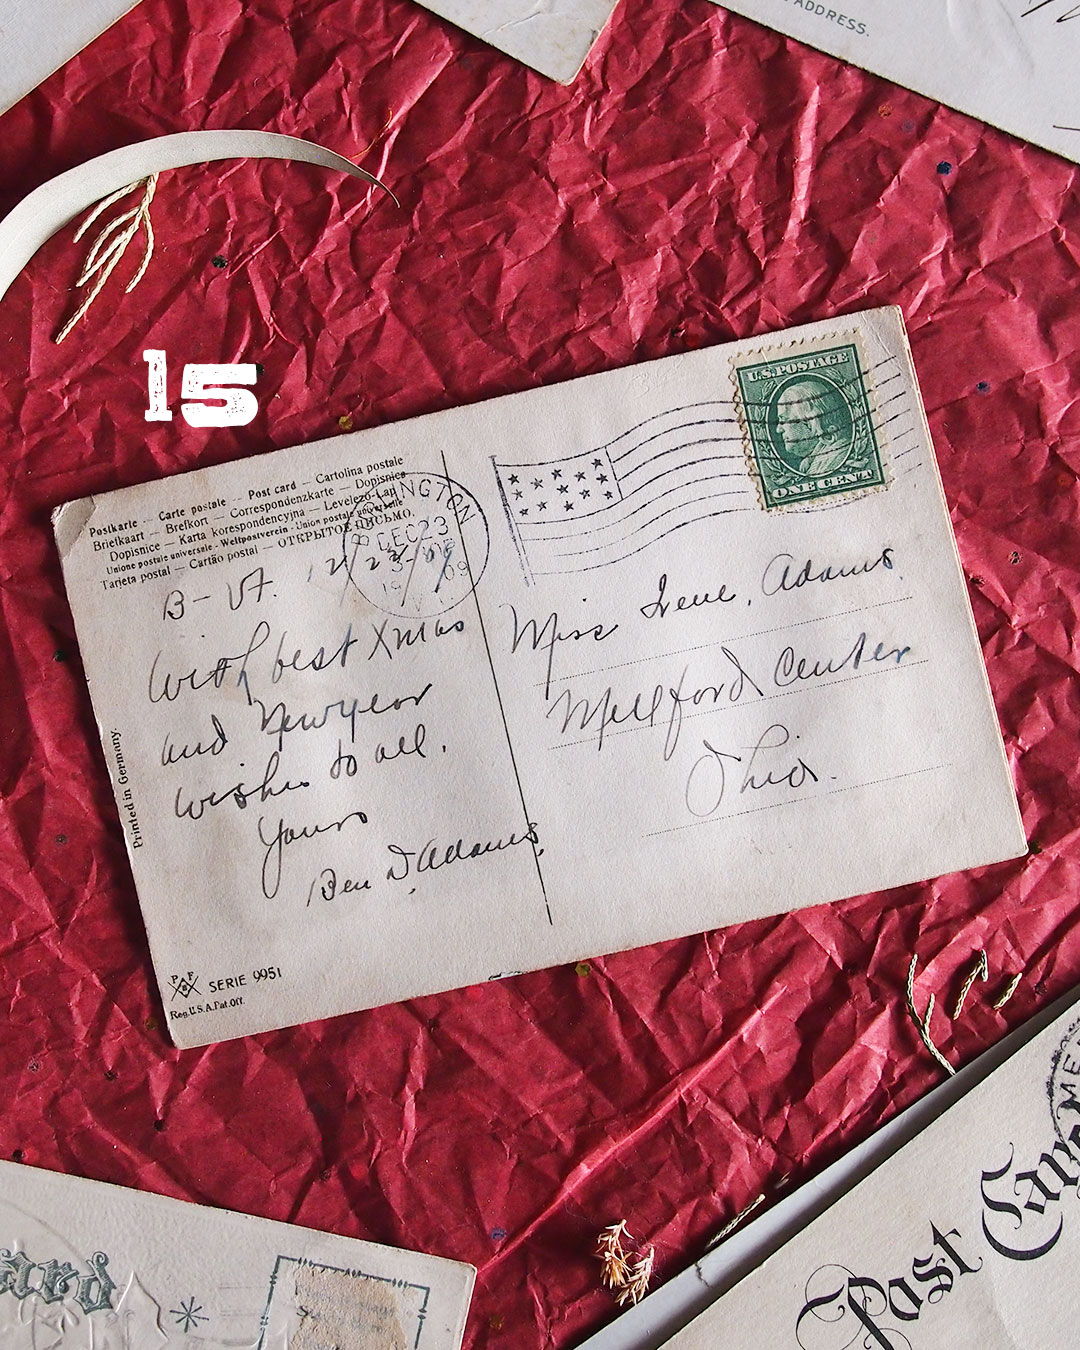 ADDRESS.
15
U.S. POSTAGE
ONE CENT
Postkarte — Carte postale — Post card — Cartolina postale
Briefkaart — Brefkort — Correspondenzkarte — Dopisnice
Dopisnice — Karta korespondencyjna — Levelező-Lap
Unione postale universale - Weltpostverein - Union postale universelle
Tarjeta postal — Cartão postal — ОТКРЫТОЕ ПИСЬМО.
DEC 23
B - Vt. 12/23/09
With best Xmas
and Newyear
wishes to all.
Yours
Ben D. Adams.
Miss Irene Adams.
Millford Center
Ohio.
Printed in Germany.
P F B
SERIE 9951
Reg. U.S.A. Pat. Off.
Post Car
ard
ME